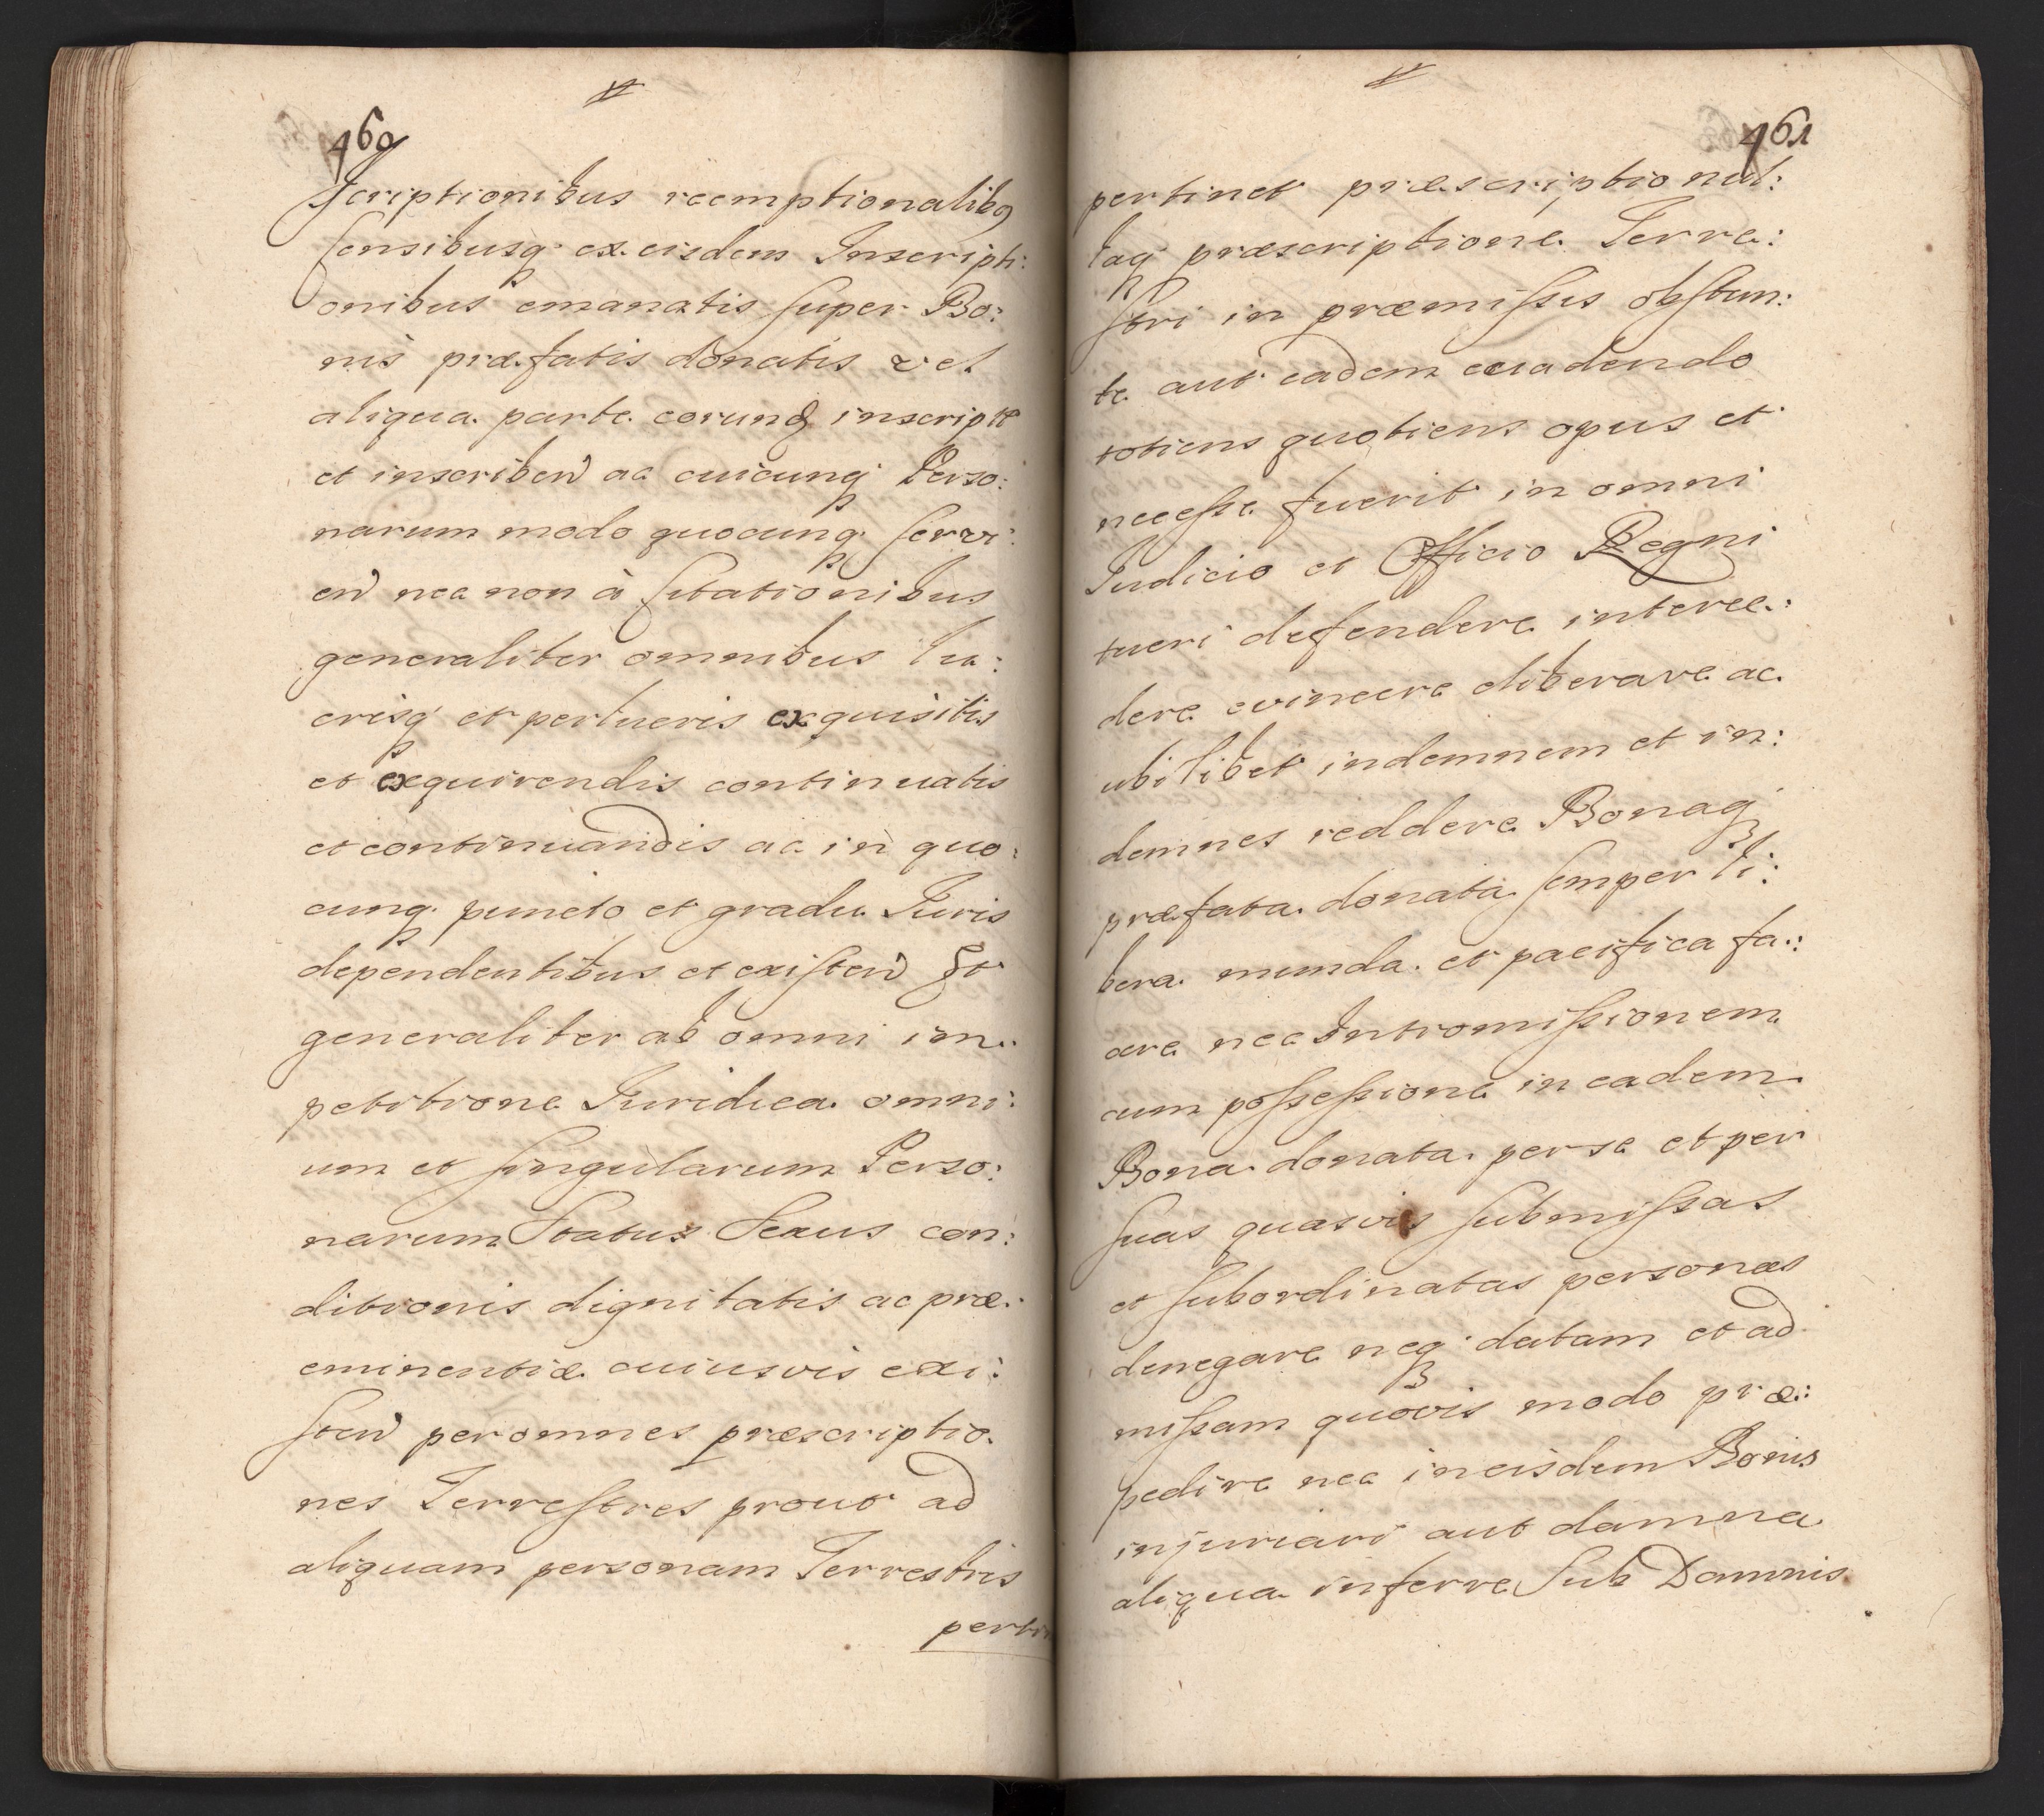 460
scriptionibus reemptionalibꝯ
censibusqꝫ ex eisdem Inscripti:
onibus emanatis super Bo:
nis præfatis donatis vel
aliqua parte eorund inscript
et inscriben ac cuicunqꝫ Perso:
narum modo quocunqꝫ servi:
en nec non à citationibus
generaliter omnibus lu:
crisqꝫ et perlucris exquisitis
et exquirendis continuatis
et continuandis ac in quo:
cunqꝫ puncto et gradu Juris
dependentibus et existen Et
generaliter ab omni im:
petitione Juridica omni:
um et singularum Perso:
narum Status Sexus con:
ditionis dignitatis ac præ:
eminentiæ cuiusvis exi:
sten per omnes præscriptio:
nes Terrestres prout ad
aliquam personam Terrestris
perti
461
pertinet præscriptio nul:
laqꝫ præscriptione Terre:
stri in præmissis obstan:
te aut eadem evadendo
totiens quotiens opus et
necesse fuerit in omni
Judicio et Officio Regni
tueri defendere interce:
dere evincere eliberare ac
ubilibet indemnem et in:
demnes reddere Bonaqꝫ
præfata donata semper li:
bera munda et pacifica fa:
cere nec Intromissionem
cum possessione in eadem
Bona donata per se et per
suas quasvis submissas
et subordinatas personas
denegare neqꝫ datam et ad
missam quovis modo præ:
pedire nec in eisdem Bonis
injuriari aut damna
aliqua inferre Sub Damnis